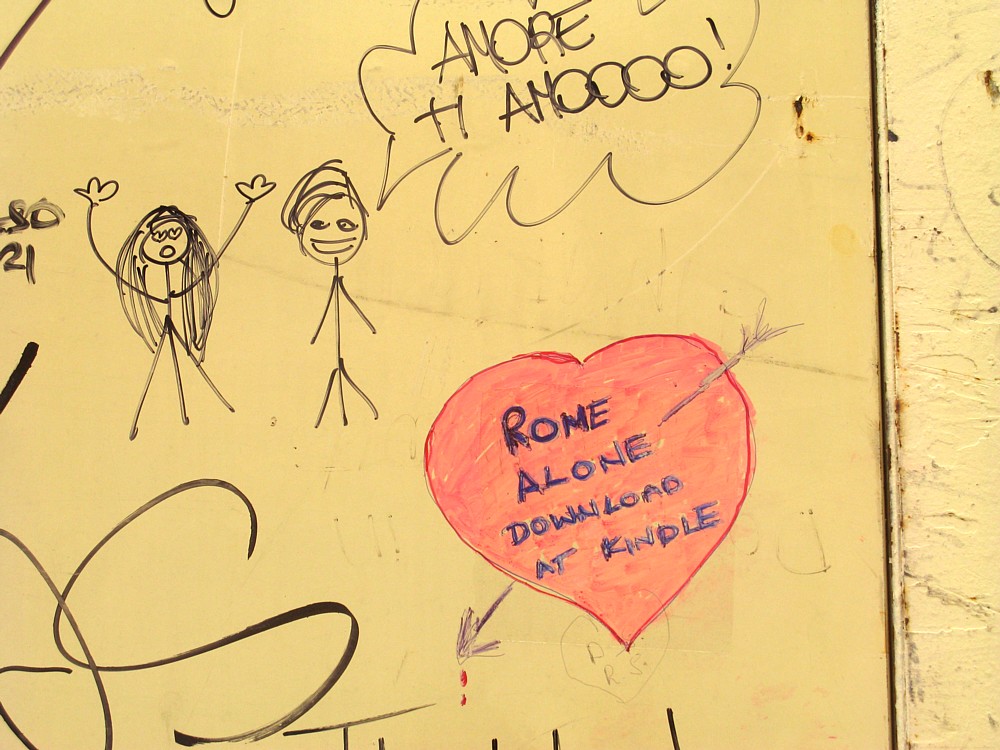 AMORE
TI AMOOOO!
21
ROME
ALONE
DOWNLOAD
AT KINDLE